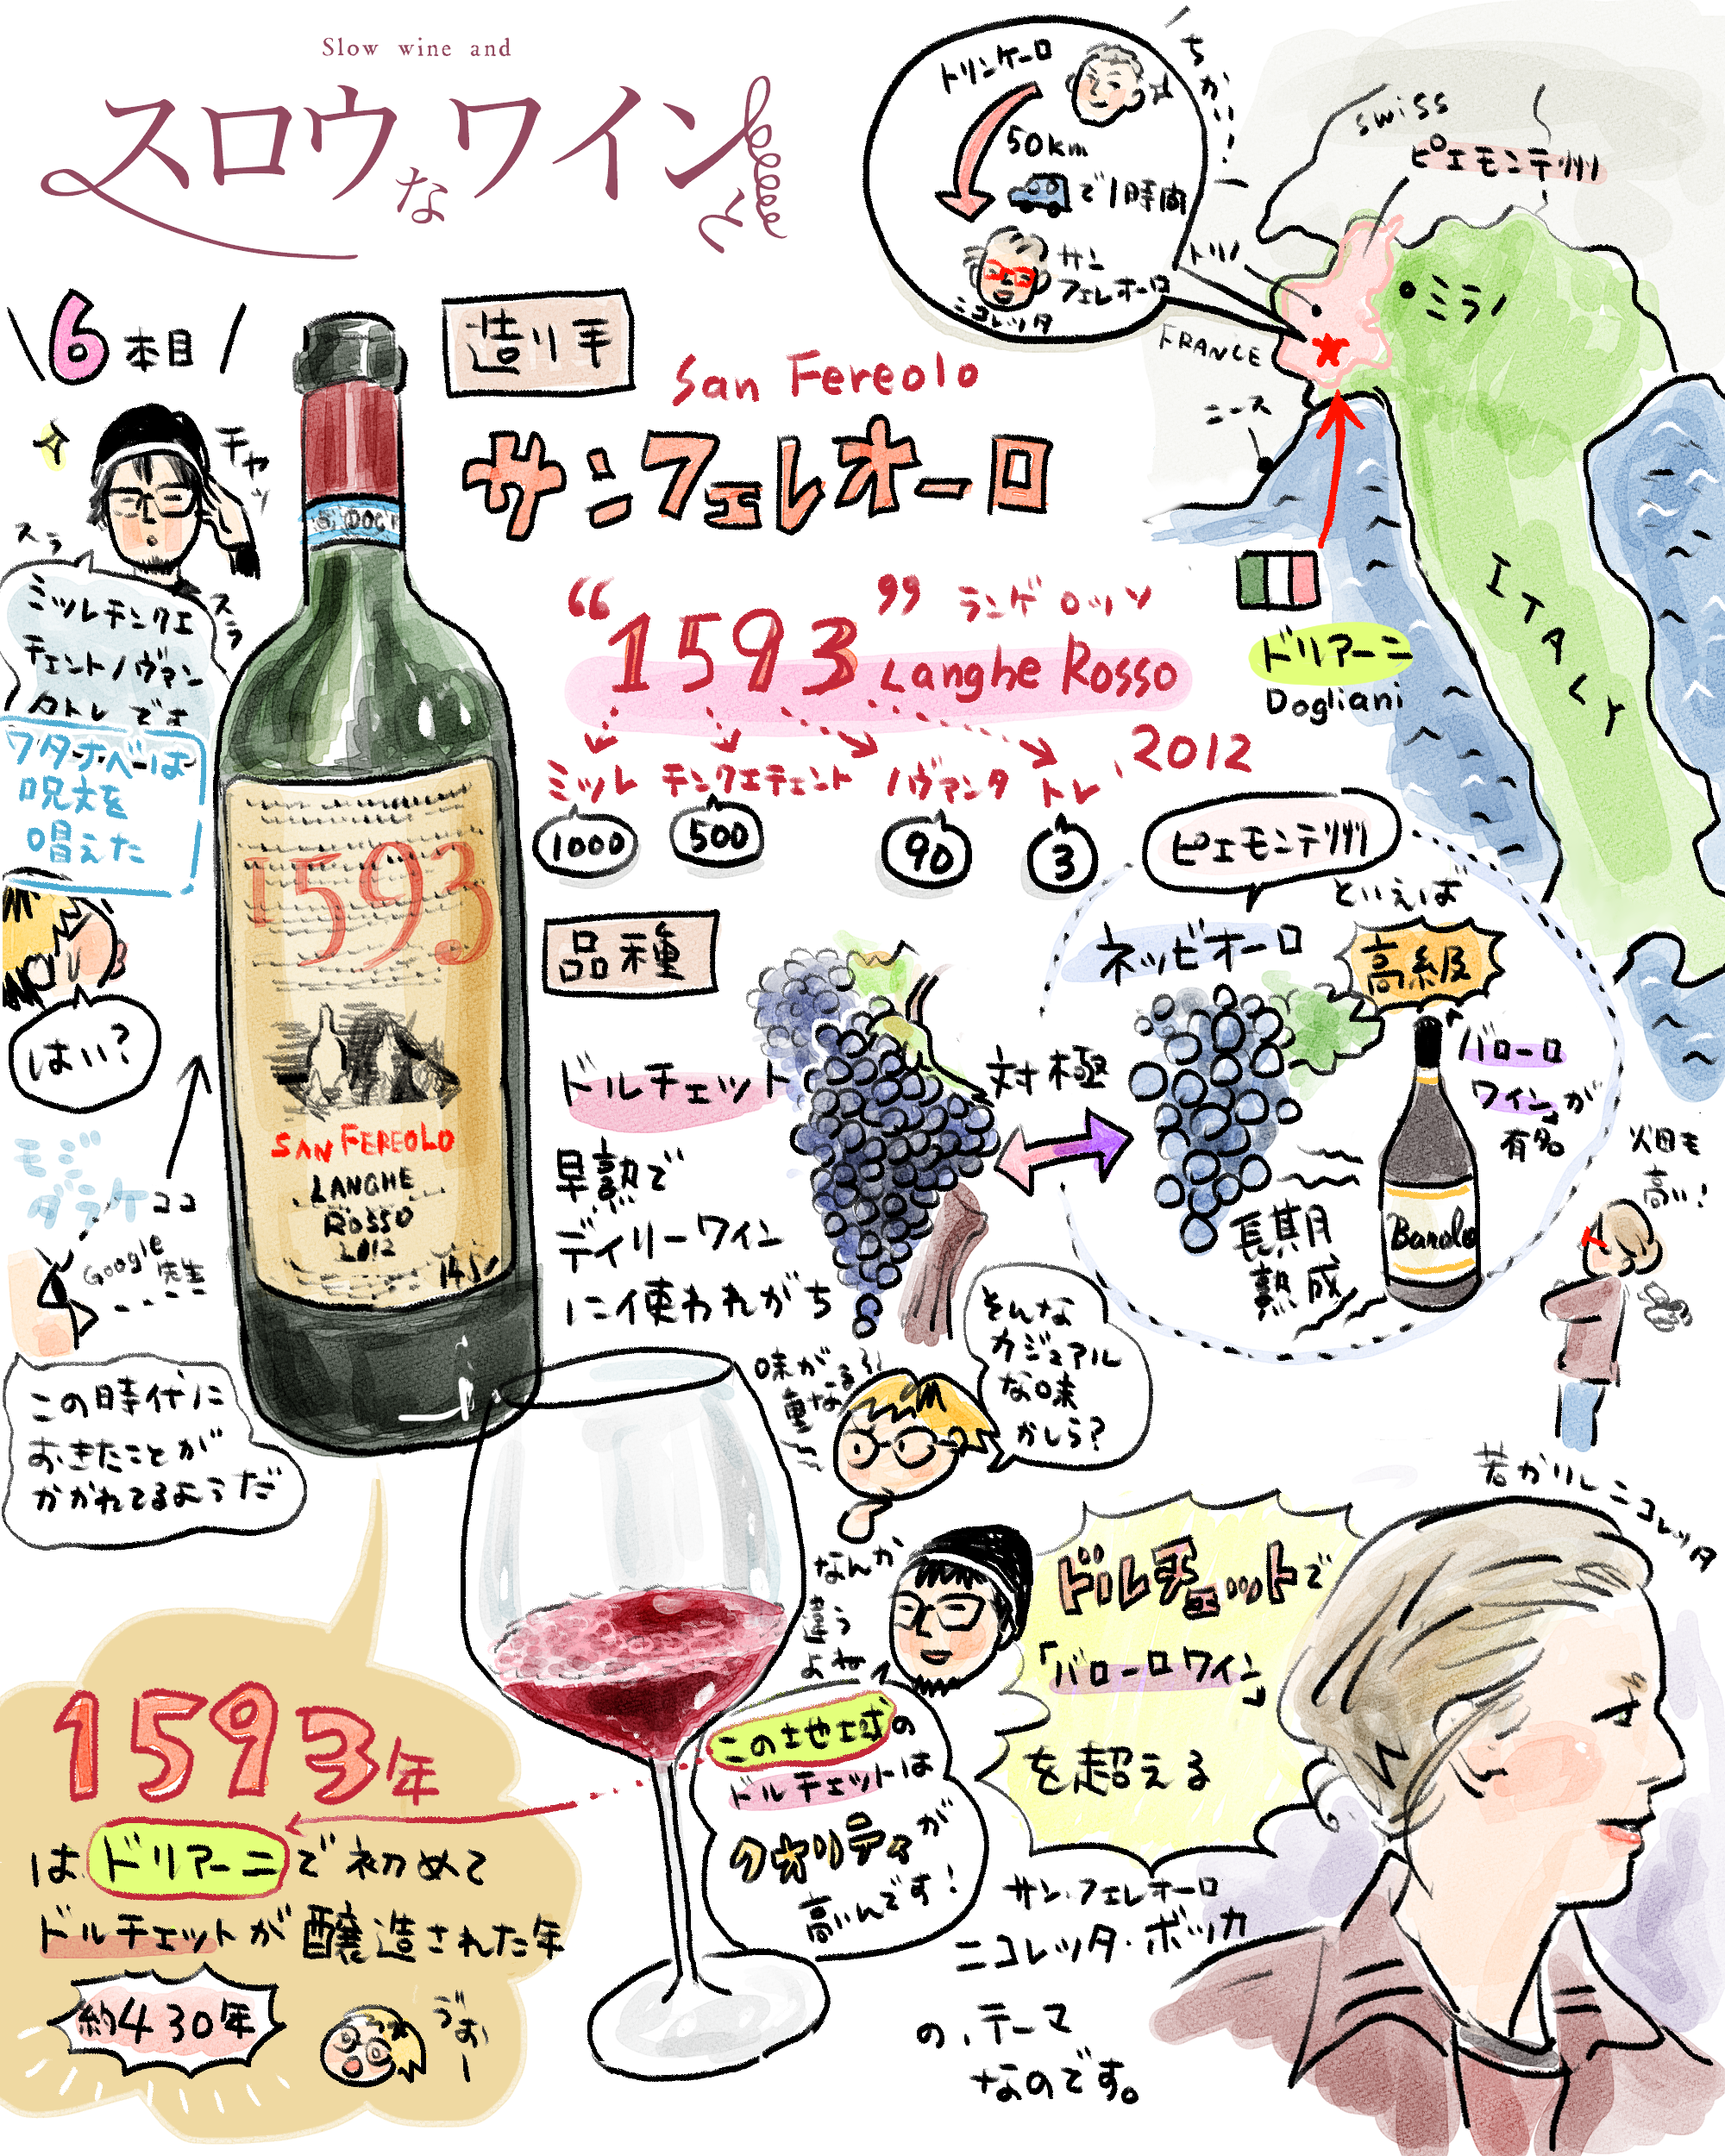 Slow wine and
スロウなワインと
6本目
チャッ
スラ
スラ
ミッレチンクエ
チェントノヴァン
タトレです
ワタナベは
呪文を
唱えた
はい?
モジ
ダラケ
ココ
Google先生
この時代に
おきたことが
かかれてるようだ
DOC
1593
SAN FEREOLO
LANGHE
ROSSO
2012
造り手
San Fereolo
サンフェレオーロ
"1593" ランゲ ロッソ
Langhe Rosso
2012
ミッレ チンクエチェント ノヴァンタ トレ
1000 500 90 3
トリンケーロ
ちかい!
50km
で1時間
サン
フェレオーロ
ニコレッタ
swiss
ピエモンテ州
トリノ
ミラノ
FRANCE
ニース
ITALY
ドリアーニ
Dogliani
品種
ドルチェット
早熟で
デイリーワイン
に使われがち
対極
ピエモンテ州
といえば
ネッビオーロ
高級
バローロ
ワイン」が
有名
Barolo
長期
熟成
畑も
高い!
味が
重なる?!
そんな
カジュアル
な味
かしら?
なんか
違う
よね
この土地の
ドルチェットは
クオリティが
高いんです!
若かりしニコレッタ
ドルチェットで
「バローロワイン」
を超える
サン・フェレオーロ
ニコレッタ・ボッカ
の、テーマ
なのです。
1593年
は、ドリアーニで初めて
ドルチェットが醸造された年
約430年
うおー